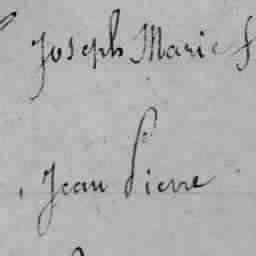 Joseph Marie
Jean Pierre